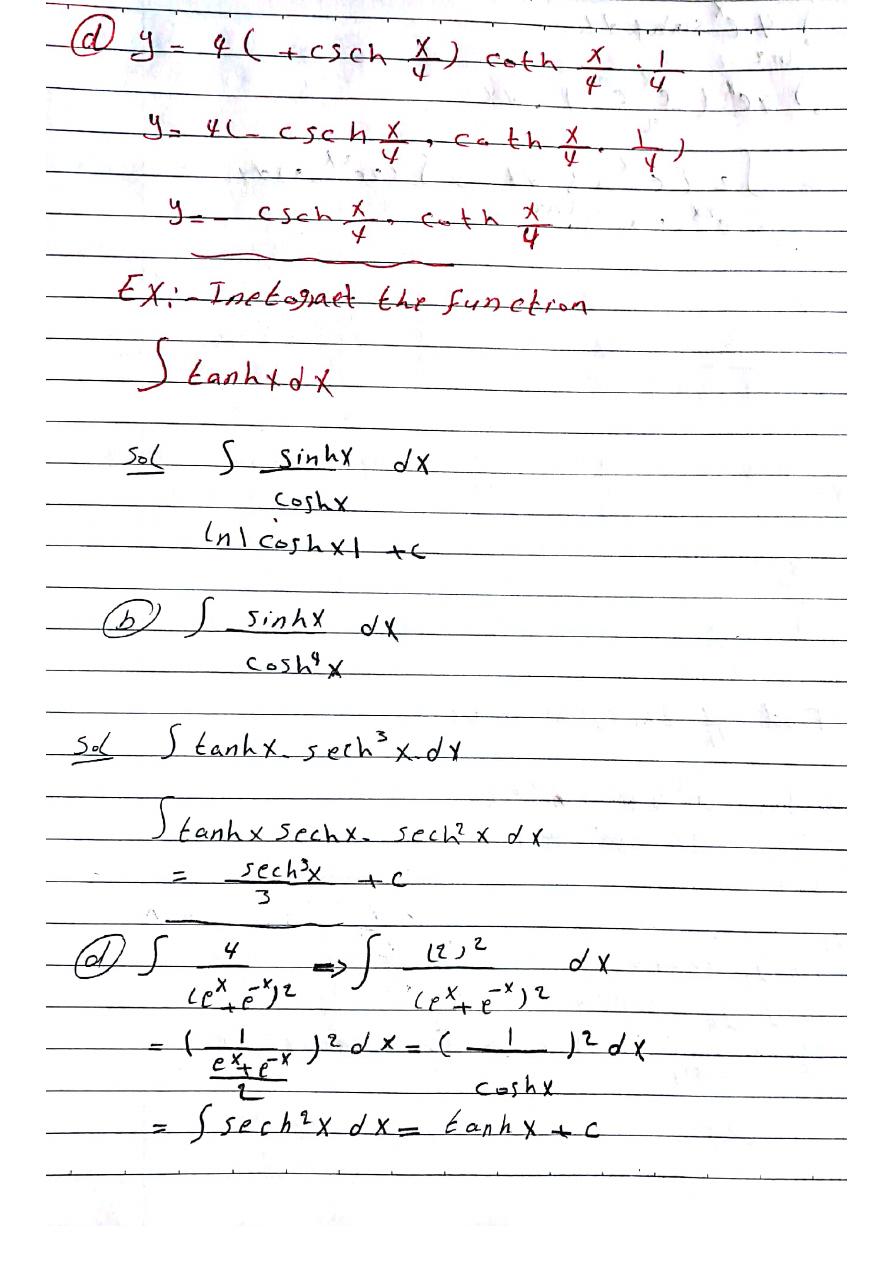 (d) y = 4 ( + csch x/4 ) coth x/4 . 1/4
y = 4 ( - csch x/4 . coth x/4 . 1/4 )
y = - csch x/4 . coth x/4
EX:- Inetograet the function
∫ tanhx dx
Sol ∫ sinhx/coshx dx
ln|coshx| + c
(b) ∫ sinhx/cosh⁴x dx
Sol ∫ tanhx . sech³x . dx
∫ tanhx sechx . sech²x dx
= sech³x/3 + c
(d) ∫ 4/(eˣ + e⁻ˣ)² ⇒ ∫ (2)²/(eˣ + e⁻ˣ)² dx
= ( 1/((eˣ + e⁻ˣ)/2) )² dx = ( 1/coshx )² dx
= ∫ sech²x dx = tanhx + c